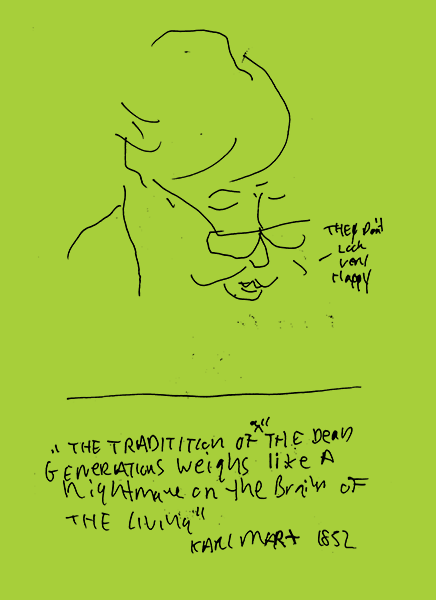 THEY DON'T
LOOK
VERY
HAPPY
"THE TRADITITION OF "THE DEAD
GENERATIONS WEIGHS LIKE A
NIGHTMARE ON THE BRAINS OF
THE LIVING"
KARL MARX 1852